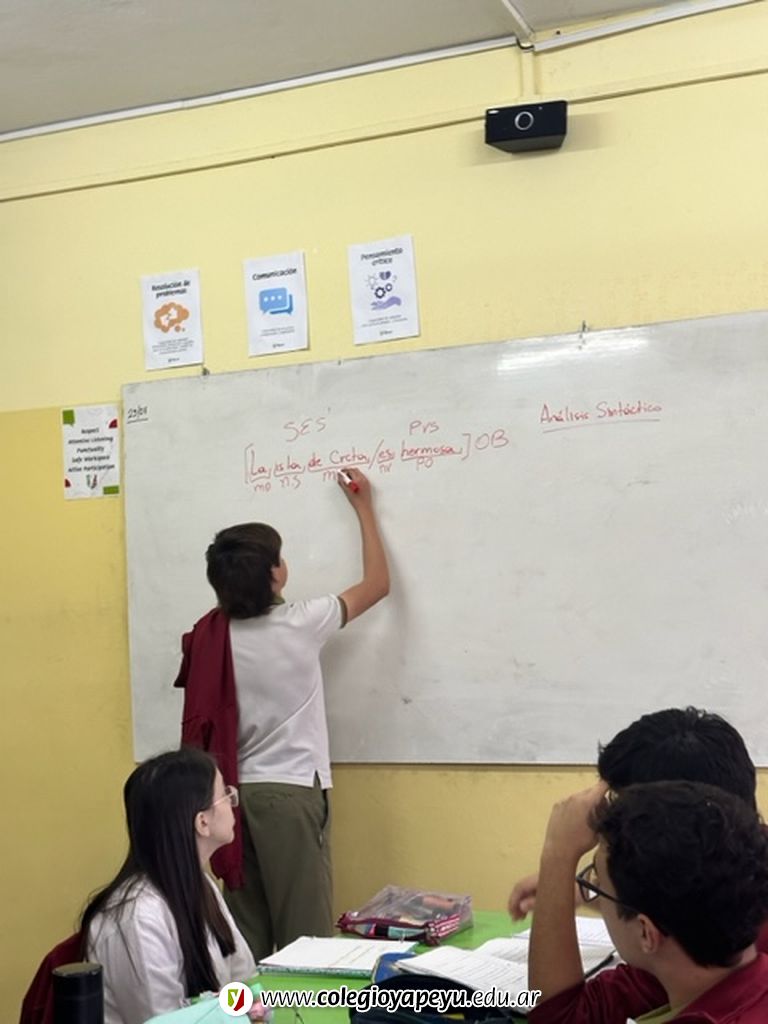 Resolución de
problemas
Comunicación
Pensamiento
crítico
Respect
Attentive Listening
Punctuality
Safe Workspace
Active Participation
SES
PVS
Análisis Sintáctico
[La isla de Creta / es hermosa] OB
md n.s m nv PO
www.colegioyapeyu.edu.ar